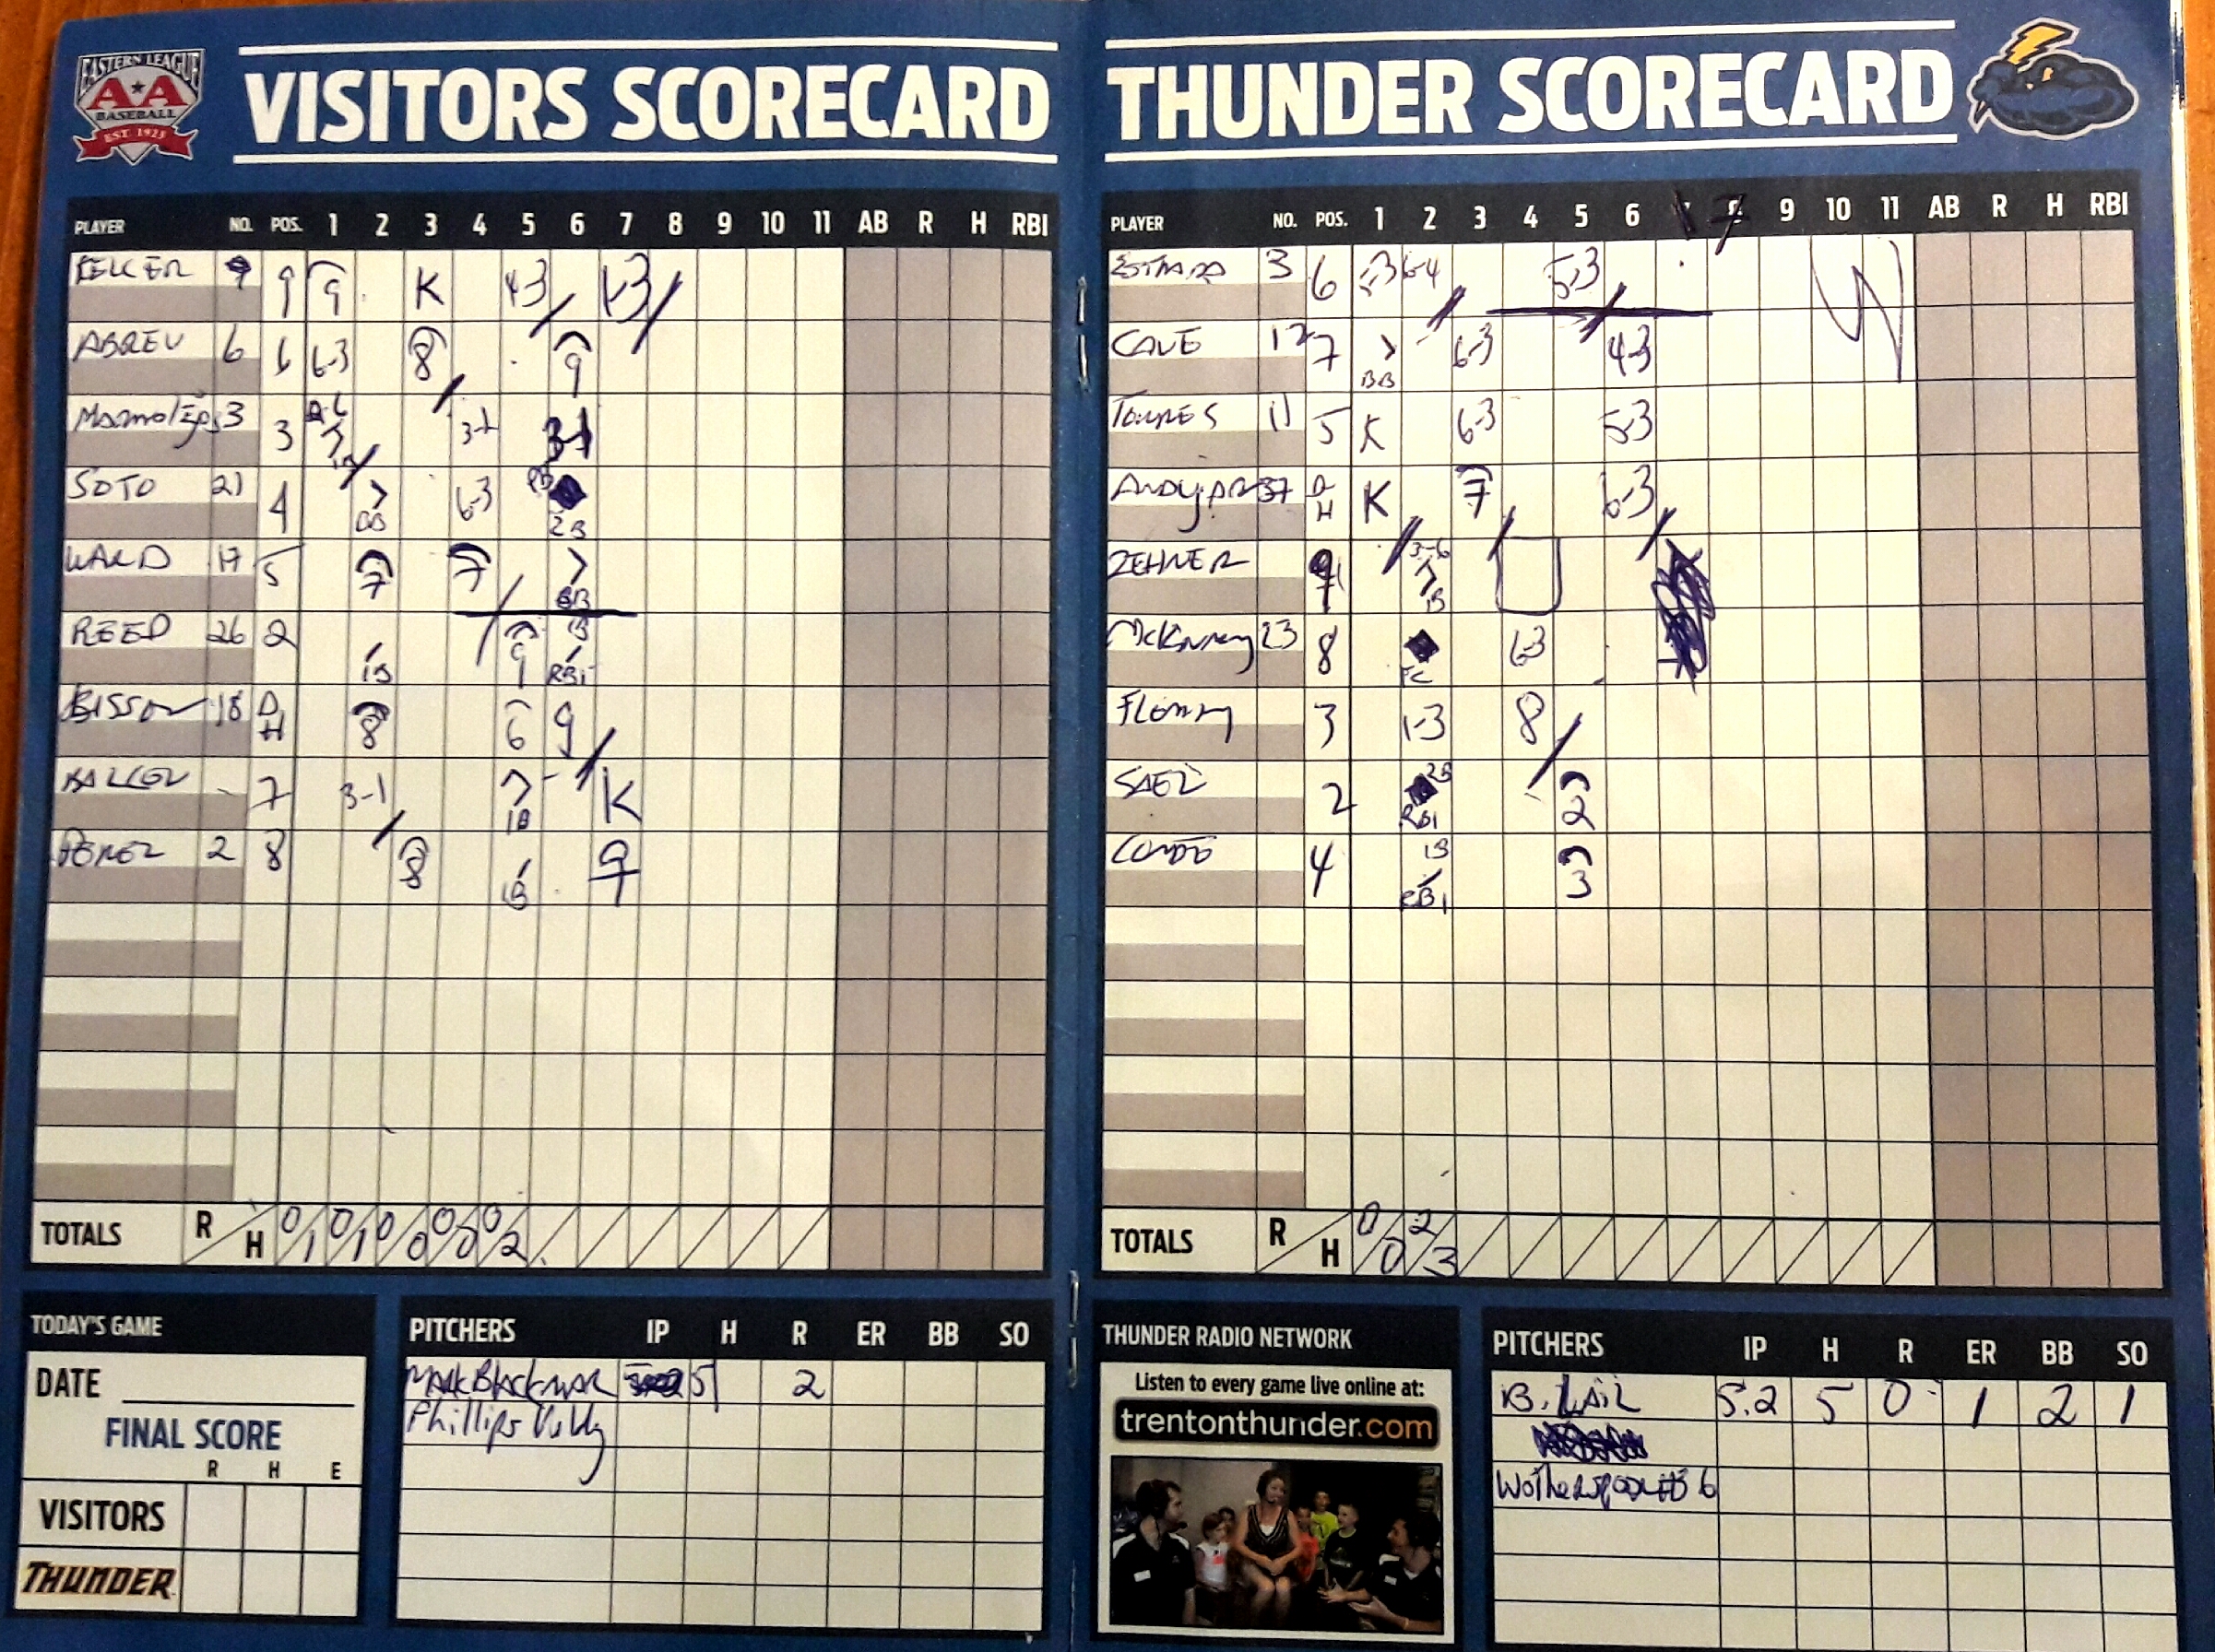 EASTERN LEAGUE
AA
BASEBALL
EST. 1923
VISITORS SCORECARD
PLAYER NO. POS. 1 2 3 4 5 6 7 8 9 10 11 AB R H RBI
9 9 K 4-3 1-3
ABREU 6 6 6-3 8 9
3 3 3-1 3-1
SOTO 21 4 BB 6-3 2B
WARD 17 5 7 7 BB
REED 26 2 1B 9 1B RBI
BISSON 18 DH 8 6 9
7 3-1 1B K
PEREZ 2 8 8 1B 9
TOTALS R H 0/1 0/1 0/0 0/0 0/2
TODAY'S GAME
DATE
FINAL SCORE
R H E
VISITORS
THUNDER
PITCHERS IP H R ER BB SO
Mark Blackmar 5 2
Phillips
THUNDER SCORECARD
PLAYER NO. POS. 1 2 3 4 5 6 7 9 10 11 AB R H RBI
ESTRADA 3 6 5-3 6-4 5-3
CAVE 12 7 BB 6-3 4-3
TORRES 11 5 K 6-3 5-3
37 DH K 7 6-3
ZEHNER 9 3-6 1B
McKinney 23 8 FC 6-3
3 1-3 8
SAEZ 2 2B RBI 2
CONDE 4 1B RBI 3
TOTALS R H 0/0 2/3
THUNDER RADIO NETWORK
Listen to every game live online at:
trentonthunder.com
PITCHERS IP H R ER BB SO
B. LAIL 5.2 5 0 1 2 1
Wotherspoon #36